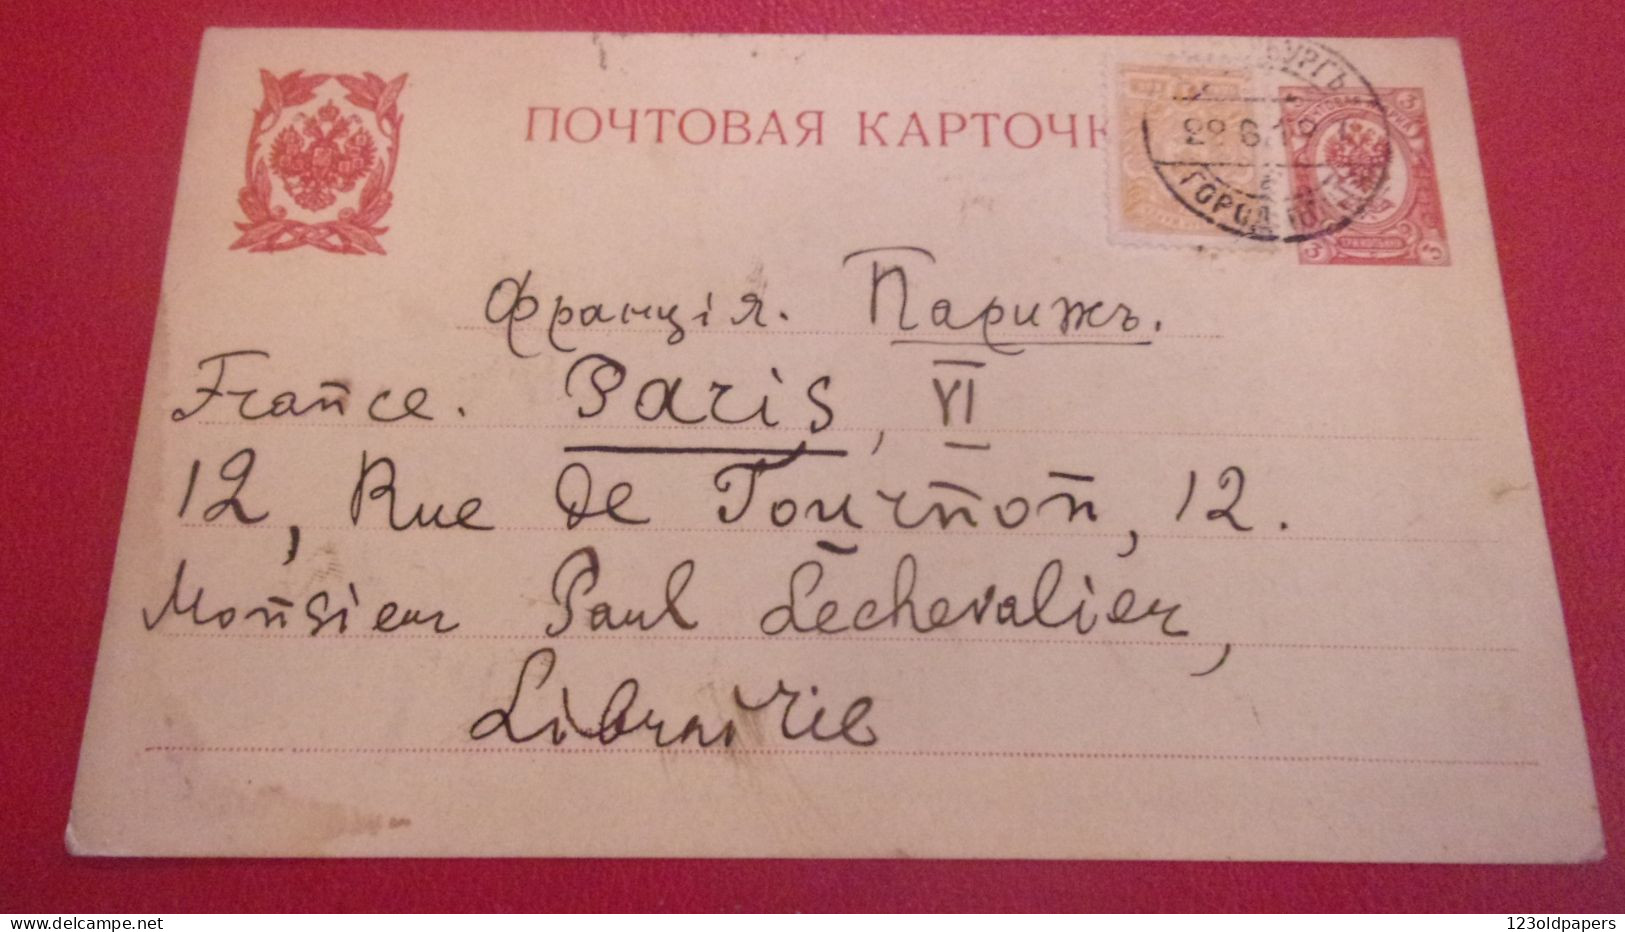 ПОЧТОВАЯ КАРТОЧК
ГОРОД
Франція. Парижъ.
France. Paris, VI
12, Rue de Tournon, 12.
Monsieur Paul Lechevalier,
Librairie
123oldpapers